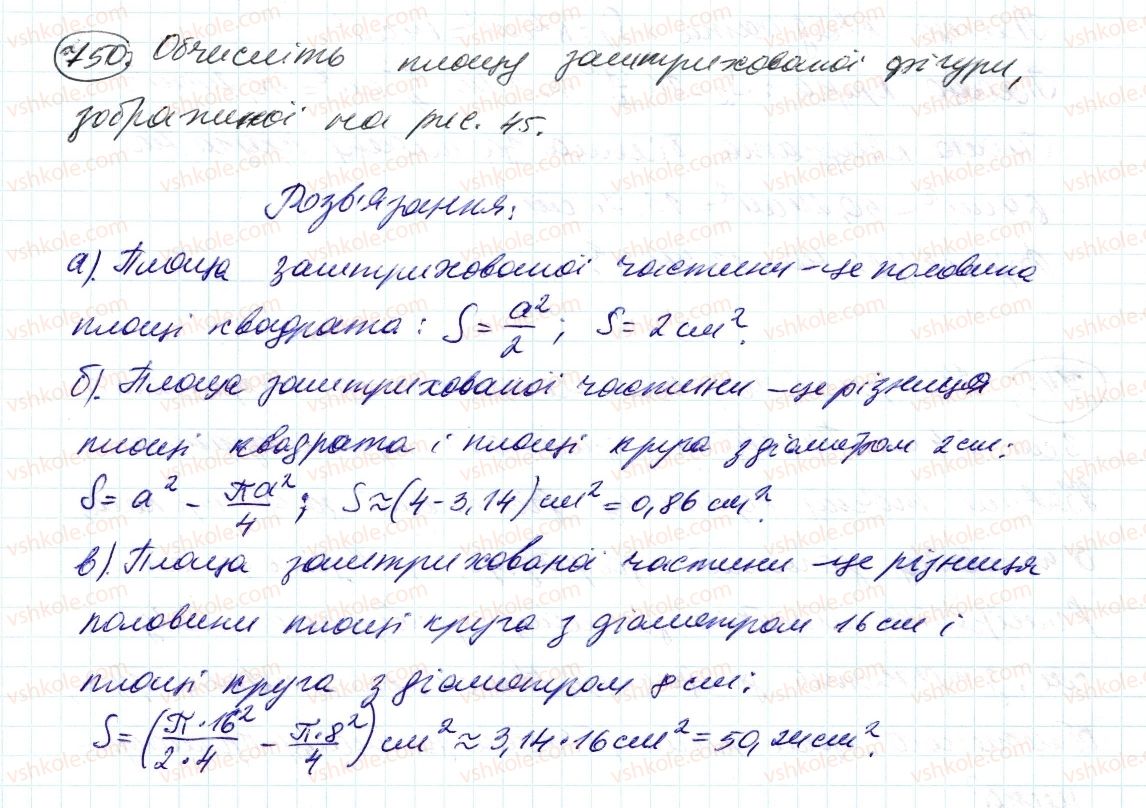 750. Обчисліть площу заштрихованої фігури,
зображеної на рис. 45.
Розв'язання:
а). Площа заштрихованої частини – це половина
площі квадрата: S = a²/2; S = 2 см².
б). Площа заштрихованої частини – це різниця
площі квадрата і площі круга з діаметром 2 см:
S = a² - πa²/4; S ≈ (4 - 3,14) см² = 0,86 см².
в). Площа заштрихованої частини – це різниця
половини площі круга з діаметром 16 см і
площі круга з діаметром 8 см:
S = (π·16²/2·4 - π·8²/4) см² ≈ 3,14·16 см² = 50,24 см².